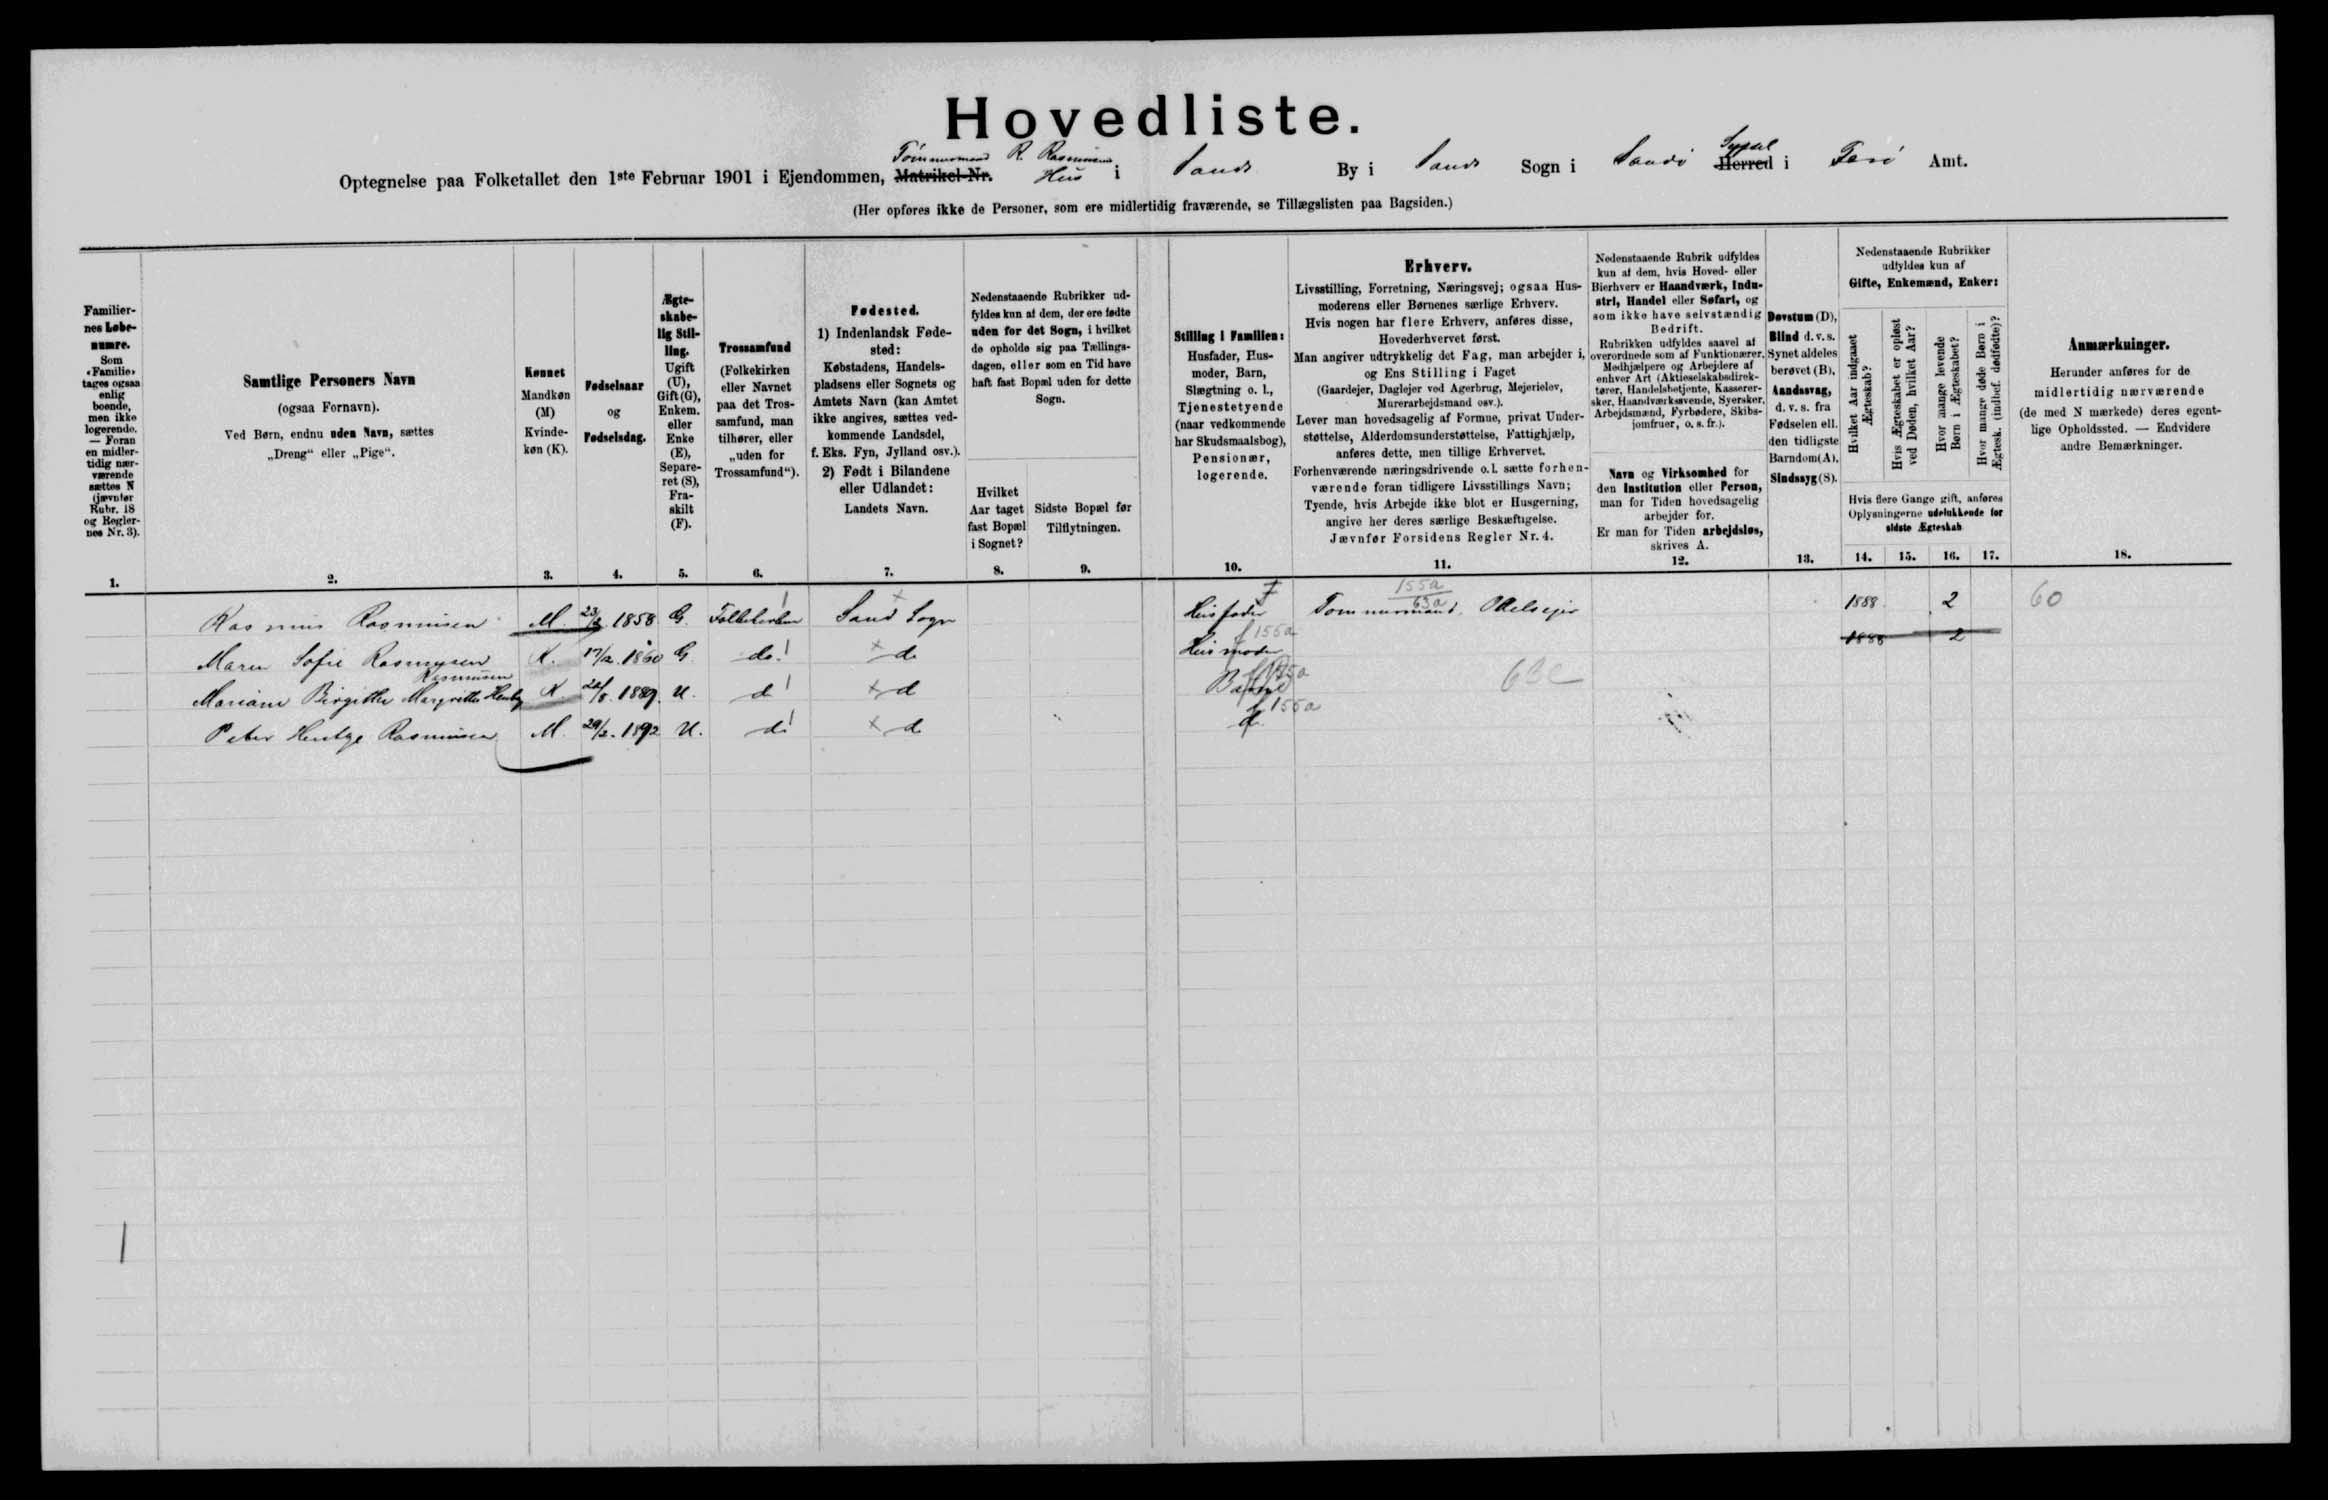 Hovedliste.
Tömmermand R. Rasmussens
Optegnelse paa Folketallet den 1ste Februar 1901 i Ejendommen, Matrikel-Nr. Hus i Sand By i Sand Sogn i Sandö Syssel Herred i Færö Amt.
(Her opføres ikke de Personer, som ere midlertidig fraværende, se Tillægslisten paa Bagsiden.)
Familier-
nes Løbe-
numre.
Som
«Familie»
tages ogsaa
enlig
boende,
men ikke
logerende.
— Foran
en midler-
tidig nær-
værende
sættes N
(jævnfør
Rubr. 18
og Regler-
nes Nr. 3).
1.
Samtlige Personers Navn
(ogsaa Fornavn).
Ved Børn, endnu uden Navn, sættes
„Dreng“ eller „Pige“.
2.
Kønnet
Mandkøn
(M)
Kvinde-
køn (K).
3.
Fødselsaar
og
Fødselsdag.
4.
Ægte-
skabe-
lig Stil-
ling.
Ugift
(U),
Gift (G),
Enkem.
eller
Enke
(E),
Separe-
ret (S),
Fra-
skilt
(F).
5.
Trossamfund
(Folkekirken
eller Navnet
paa det Tros-
samfund, man
tilhører, eller
„uden for
Trossamfund“).
6.
Fødested.
1) Indenlandsk Føde-
sted:
Købstadens, Handels-
pladsens eller Sognets og
Amtets Navn (kan Amtet
ikke angives, sættes ved-
kommende Landsdel,
f. Eks. Fyn, Jylland osv.).
2) Født i Bilandene
eller Udlandet:
Landets Navn.
7.
Nedenstaaende Rubrikker ud-
fyldes kun af dem, der ere fødte
uden for det Sogn, i hvilket
de opholde sig paa Tællings-
dagen, eller som en Tid have
haft fast Bopæl uden for dette
Sogn.
Hvilket
Aar taget
fast Bopæl
i Sognet?
8.
Sidste Bopæl før
Tilflytningen.
9.
Stilling i Familien:
Husfader, Hus-
moder, Barn,
Slægtning o. l.,
Tjenestetyende
(naar vedkommende
har Skudsmaalsbog),
Pensionær,
logerende.
10.
Erhverv.
Livsstilling, Forretning, Næringsvej; ogsaa Hus-
moderens eller Børnenes særlige Erhverv.
Hvis nogen har flere Erhverv, anføres disse,
Hovederhvervet først.
Man angiver udtrykkelig det Fag, man arbejder i,
og Ens Stilling i Faget
(Gaardejer, Daglejer ved Agerbrug, Mejerielev,
Murerarbejdsmand osv.).
Lever man hovedsagelig af Formue, privat Under-
støttelse, Alderdomsunderstøttelse, Fattighjælp,
anføres dette, men tillige Erhvervet.
Forhenværende næringsdrivende o. l. sætte forhen-
værende foran tidligere Livsstillings Navn;
Tyende, hvis Arbejde ikke blot er Husgerning,
angive her deres særlige Beskæftigelse.
Jævnfør Forsidens Regler Nr. 4.
11.
Nedenstaaende Rubrik udfyldes
kun af dem, hvis Hoved- eller
Bierhverv er Haandværk, Indu-
stri, Handel eller Søfart, og
som ikke have selvstændig
Bedrift.
Rubrikken udfyldes saavel af
overordnede som af Funktionærer,
Medhjælpere og Arbejdere af
enhver Art (Aktieselskabsdirek-
tører, Handelsbetjente, Kasserer-
sker, Haandværkssvende, Syersker,
Arbejdsmænd, Fyrbødere, Skibs-
jomfruer, o. s. fr.).
Navn og Virksomhed for
den Institution eller Person,
man for Tiden hovedsagelig
arbejder for.
Er man for Tiden arbejdsløs,
skrives A.
12.
Døvstum (D),
Blind d. v. s.
Synet aldeles
berøvet (B),
Aandssvag,
d. v. s. fra
Fødselen ell.
den tidligste
Barndom (A),
Sindssyg (S).
13.
Nedenstaaende Rubrikker
udfyldes kun af
Gifte, Enkemænd, Enker:
Hvilket Aar indgaaet
Ægteskab?
Hvis Ægteskabet er opløst
ved Døden, hvilket Aar?
Hvor mange levende
Børn i Ægteskabet?
Hvor mange døde Børn i
Ægtesk. (indbef. dødfødte)?
Hvis flere Gange gift, anføres
Oplysningerne udelukkende for
sidste Ægteskab
14. 15. 16. 17.
Anmærkninger.
Herunder anføres for de
midlertidig nærværende
(de med N mærkede) deres egent-
lige Opholdssted. — Endvidere
andre Bemærkninger.
18.
Rasmus Rasmussen M. 1858 G. Folkekirken Sand Sogn Husfader Tömmermand, Odelsejer 155a 63a 1888 2 60
Maren Sofie Rasmussen K. 17/2 1860 G. do. do Husmoder f 155a 1888 2
Rasmussen
Mariane Birgitte Margrethe K. 1889. U. do do 63c
Peter Hentze Rasmussen M. 29/2 1892 U. do do do f 155a